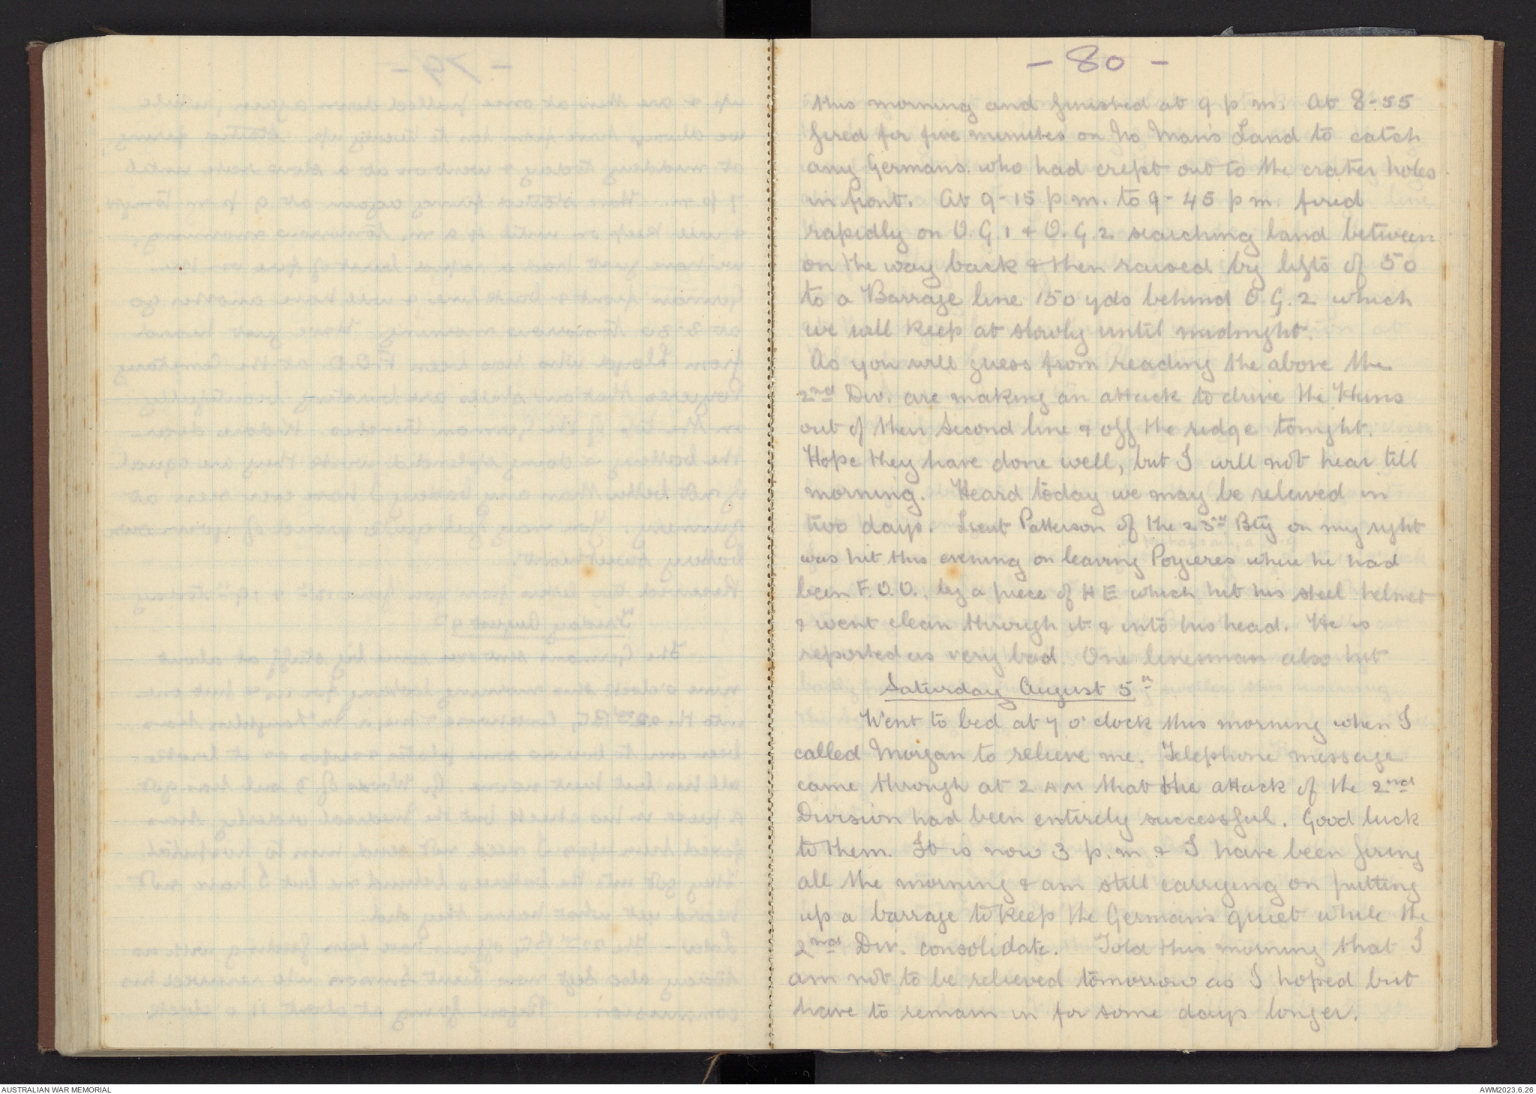 - 80 -
this morning and finished at 9 p m. At 8-55
fired for five minutes on No Man's Land to catch
any Germans who had crept out to the crater holes
in front. At 9-15 p.m. to 9-45 p m fired
rapidly on O.G.1 + O.G.2 searching land between
on the way back & then raised by lifts of 50
to a Barrage line 150 yds behind O.G.2 which
we will keep at slowly until midnight.
As you will guess from reading the above the
2nd Div. are making an attack to drive the Huns
out of their second line & off the ridge tonight.
Hope they have done well, but I will not hear till
morning. Heard today we may be relieved in
two days. Lieut Patterson of the Bty on my right
was hit this evening on leaving Pozieres where he had
been F.O.O., by a piece of H E which hit his steel helmet
& went clean through it & into his head. He is
reported as very bad. One linesman also hit
Saturday August 5th
Went to bed at 7 o'clock this morning when I
called Morgan to relieve me. Telephone message
came through at 2 AM that the attack of the 2nd
Division had been entirely successful. Good luck
to them. It is now 3 p.m & I have been firing
all the morning & am still carrying on putting
up a barrage to keep the Germans quiet while the
2nd Div. consolidate. Told this morning that I
am not to be relieved tomorrow as I hoped but
have to remain in for some days longer.
AUSTRALIAN WAR MEMORIAL
AWM2023.6.26